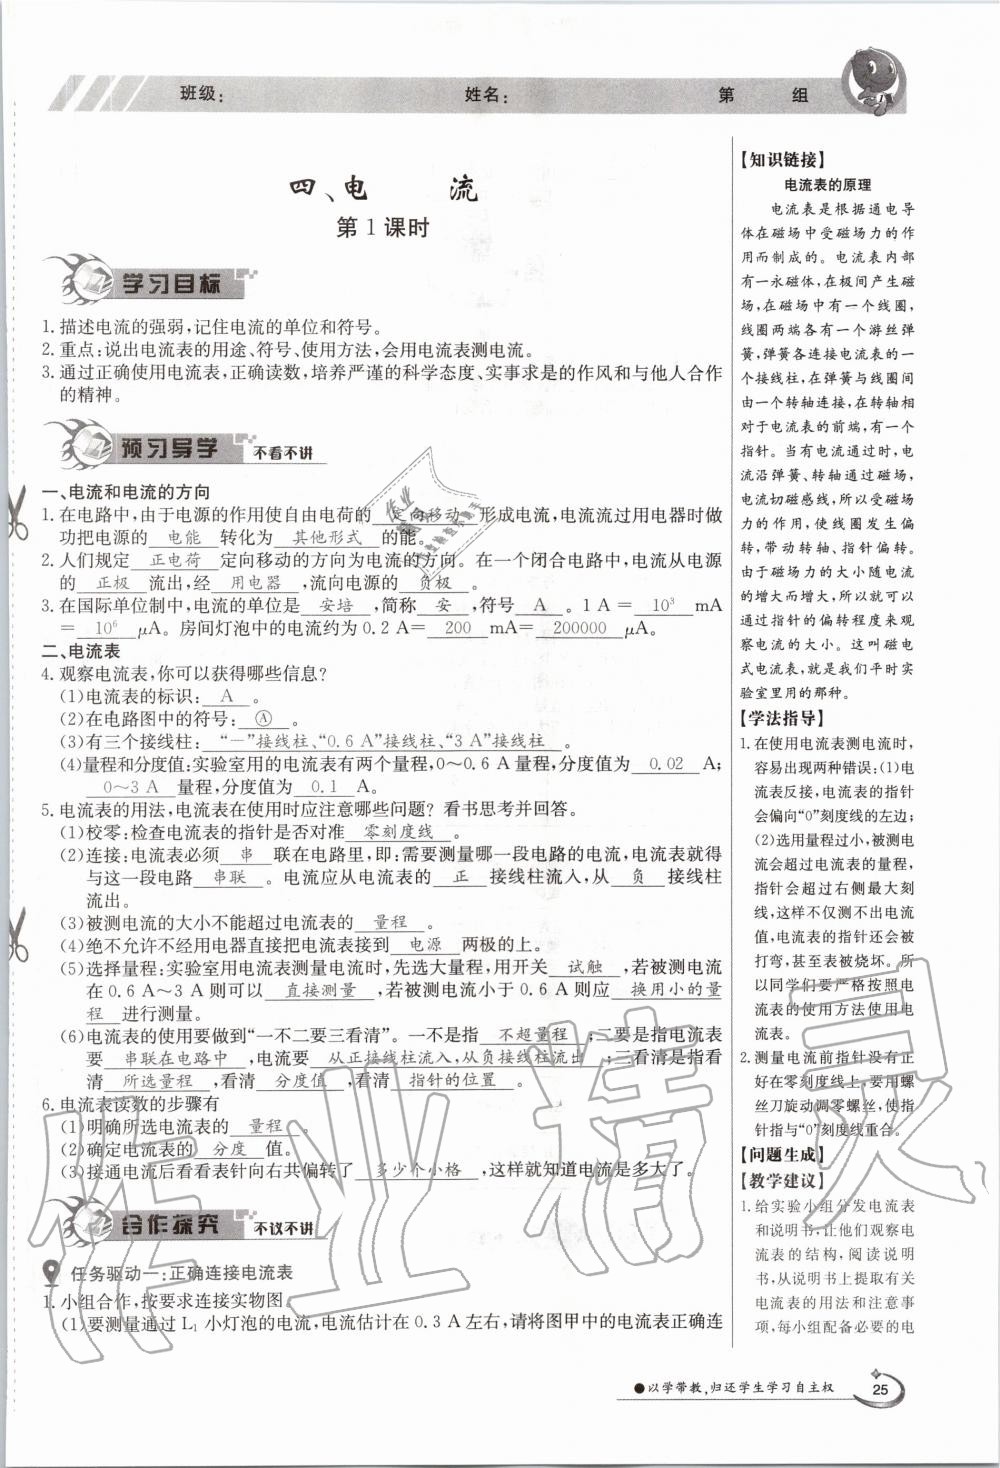 班级: 姓名: 第 组
四、电 流
第1课时
学习目标
1. 描述电流的强弱,记住电流的单位和符号。
2. 重点:说出电流表的用途、符号、使用方法,会用电流表测电流。
3. 通过正确使用电流表,正确读数,培养严谨的科学态度、实事求是的作风和与他人合作
的精神。
预习导学 不看不讲
一、电流和电流的方向
1. 在电路中,由于电源的作用使自由电荷的 定向移动 形成电流,电流流过用电器时做
功把 电能 转化为 其他形式 的能。
2. 人们规定 正电荷 定向移动的方向为电流的方向。在一个闭合电路中,电流从电源
的 正极 流出,经 用电器 ,流向电源的 负极 。
3. 在国际单位制中,电流的单位是 安培 ,简称 安 ,符号 A 。1 A= 10³ mA
= 10⁶ μA。房间灯泡中的电流约为 0.2 A= 200 mA= 200000 μA。
二、电流表
4. 观察电流表,你可以获得哪些信息?
(1)电流表的标识: A 。
(2)在电路图中的符号: Ⓐ 。
(3)有三个接线柱: “—”接线柱、“0.6 A”接线柱、“3 A”接线柱 。
(4)量程和分度值:实验室用的电流表有两个量程,0～0.6 A量程,分度值为 0.02 A;
0～3 A 量程,分度值为 0.1 A。
5. 电流表的用法,电流表在使用时应注意哪些问题?看书思考并回答。
(1)校零:检查电流表的指针是否对准 零刻度线 。
(2)连接:电流表必须 串 联在电路里,即:需要测量哪一段电路的电流,电流表就得
与这一段电路 串联 。电流应从电流表的 正 接线柱流入,从 负 接线柱
流出。
(3)被测电流的大小不能超过电流表的 量程 。
(4)绝不允许不经用电器直接把电流表接到 电源 两极的上。
(5)选择量程:实验室用电流表测量电流时,先选大量程,用开关 试触 ,若被测电流
在 0.6 A～3 A 则可以 直接测量 ,若被测电流小于 0.6 A 则应 换用小的量
程 进行测量。
(6)电流表的使用要做到“一不二要三看清”。一不是指 不超量程 ,二要是指电流表
要 串联在电路中 ,电流要 从正接线柱流入,从负接线柱流出 ;三看清是指看
清 所选量程 ,看清 分度值 ,看清 指针的位置 。
6. 电流表读数的步骤有
(1)明确所选电流表的 量程 。
(2)确定电流表的 分度 值。
(3)接通电流后看看表针向右共偏转了 多少个小格 ,这样就知道电流是多大了。
合作探究 不议不讲
任务驱动一:正确连接电流表
1. 小组合作,按要求连接实物图
(1)要测量通过 L₁ 小灯泡的电流,电流估计在 0.3 A 左右,请将图甲中的电流表正确连
【知识链接】
电流表的原理
电流表是根据通电导
体在磁场中受磁场力的作
用而制成的。电流表内部
有一永磁体,在极间产生磁
场,在磁场中有一个线圈,
线圈两端各有一个游丝弹
簧,弹簧各连接电流表的一
个接线柱,在弹簧与线圈间
由一个转轴连接,在转轴相
对于电流表的前端,有一个
指针。当有电流通过时,电
流沿弹簧、转轴通过磁场,
电流切磁感线,所以受磁场
力的作用,使线圈发生偏
转,带动转轴、指针偏转。
由于磁场力的大小随电流
的增大而增大,所以就可以
通过指针的偏转程度来观
察电流的大小。这叫磁电
式电流表,就是我们平时实
验室里用的那种。
【学法指导】
1. 在使用电流表测电流时,
容易出现两种错误:(1)电
流表反接,电流表的指针
会偏向“0”刻度线的左边;
(2)选用量程过小,被测电
流会超过电流表的量程,
指针会超过右侧最大刻
线,这样不仅测不出电流
值,电流表的指针还会被
打弯,甚至表被烧坏。所
以同学们要严格按照电
流表的使用方法使用电
流表。
2. 测量电流前指针没有正
好在零刻度线上,要用螺
丝刀旋动调零螺丝,使指
针指与“0”刻度线重合。
【问题生成】
【教学建议】
1. 给实验小组分发电流表
和说明书,让他们观察电
流表的结构,阅读说明
书,从说明书上提取有关
电流表的用法和注意事
项,每小组配备必要的电
●以学带教,归还学生学习自主权 25
作业精灵